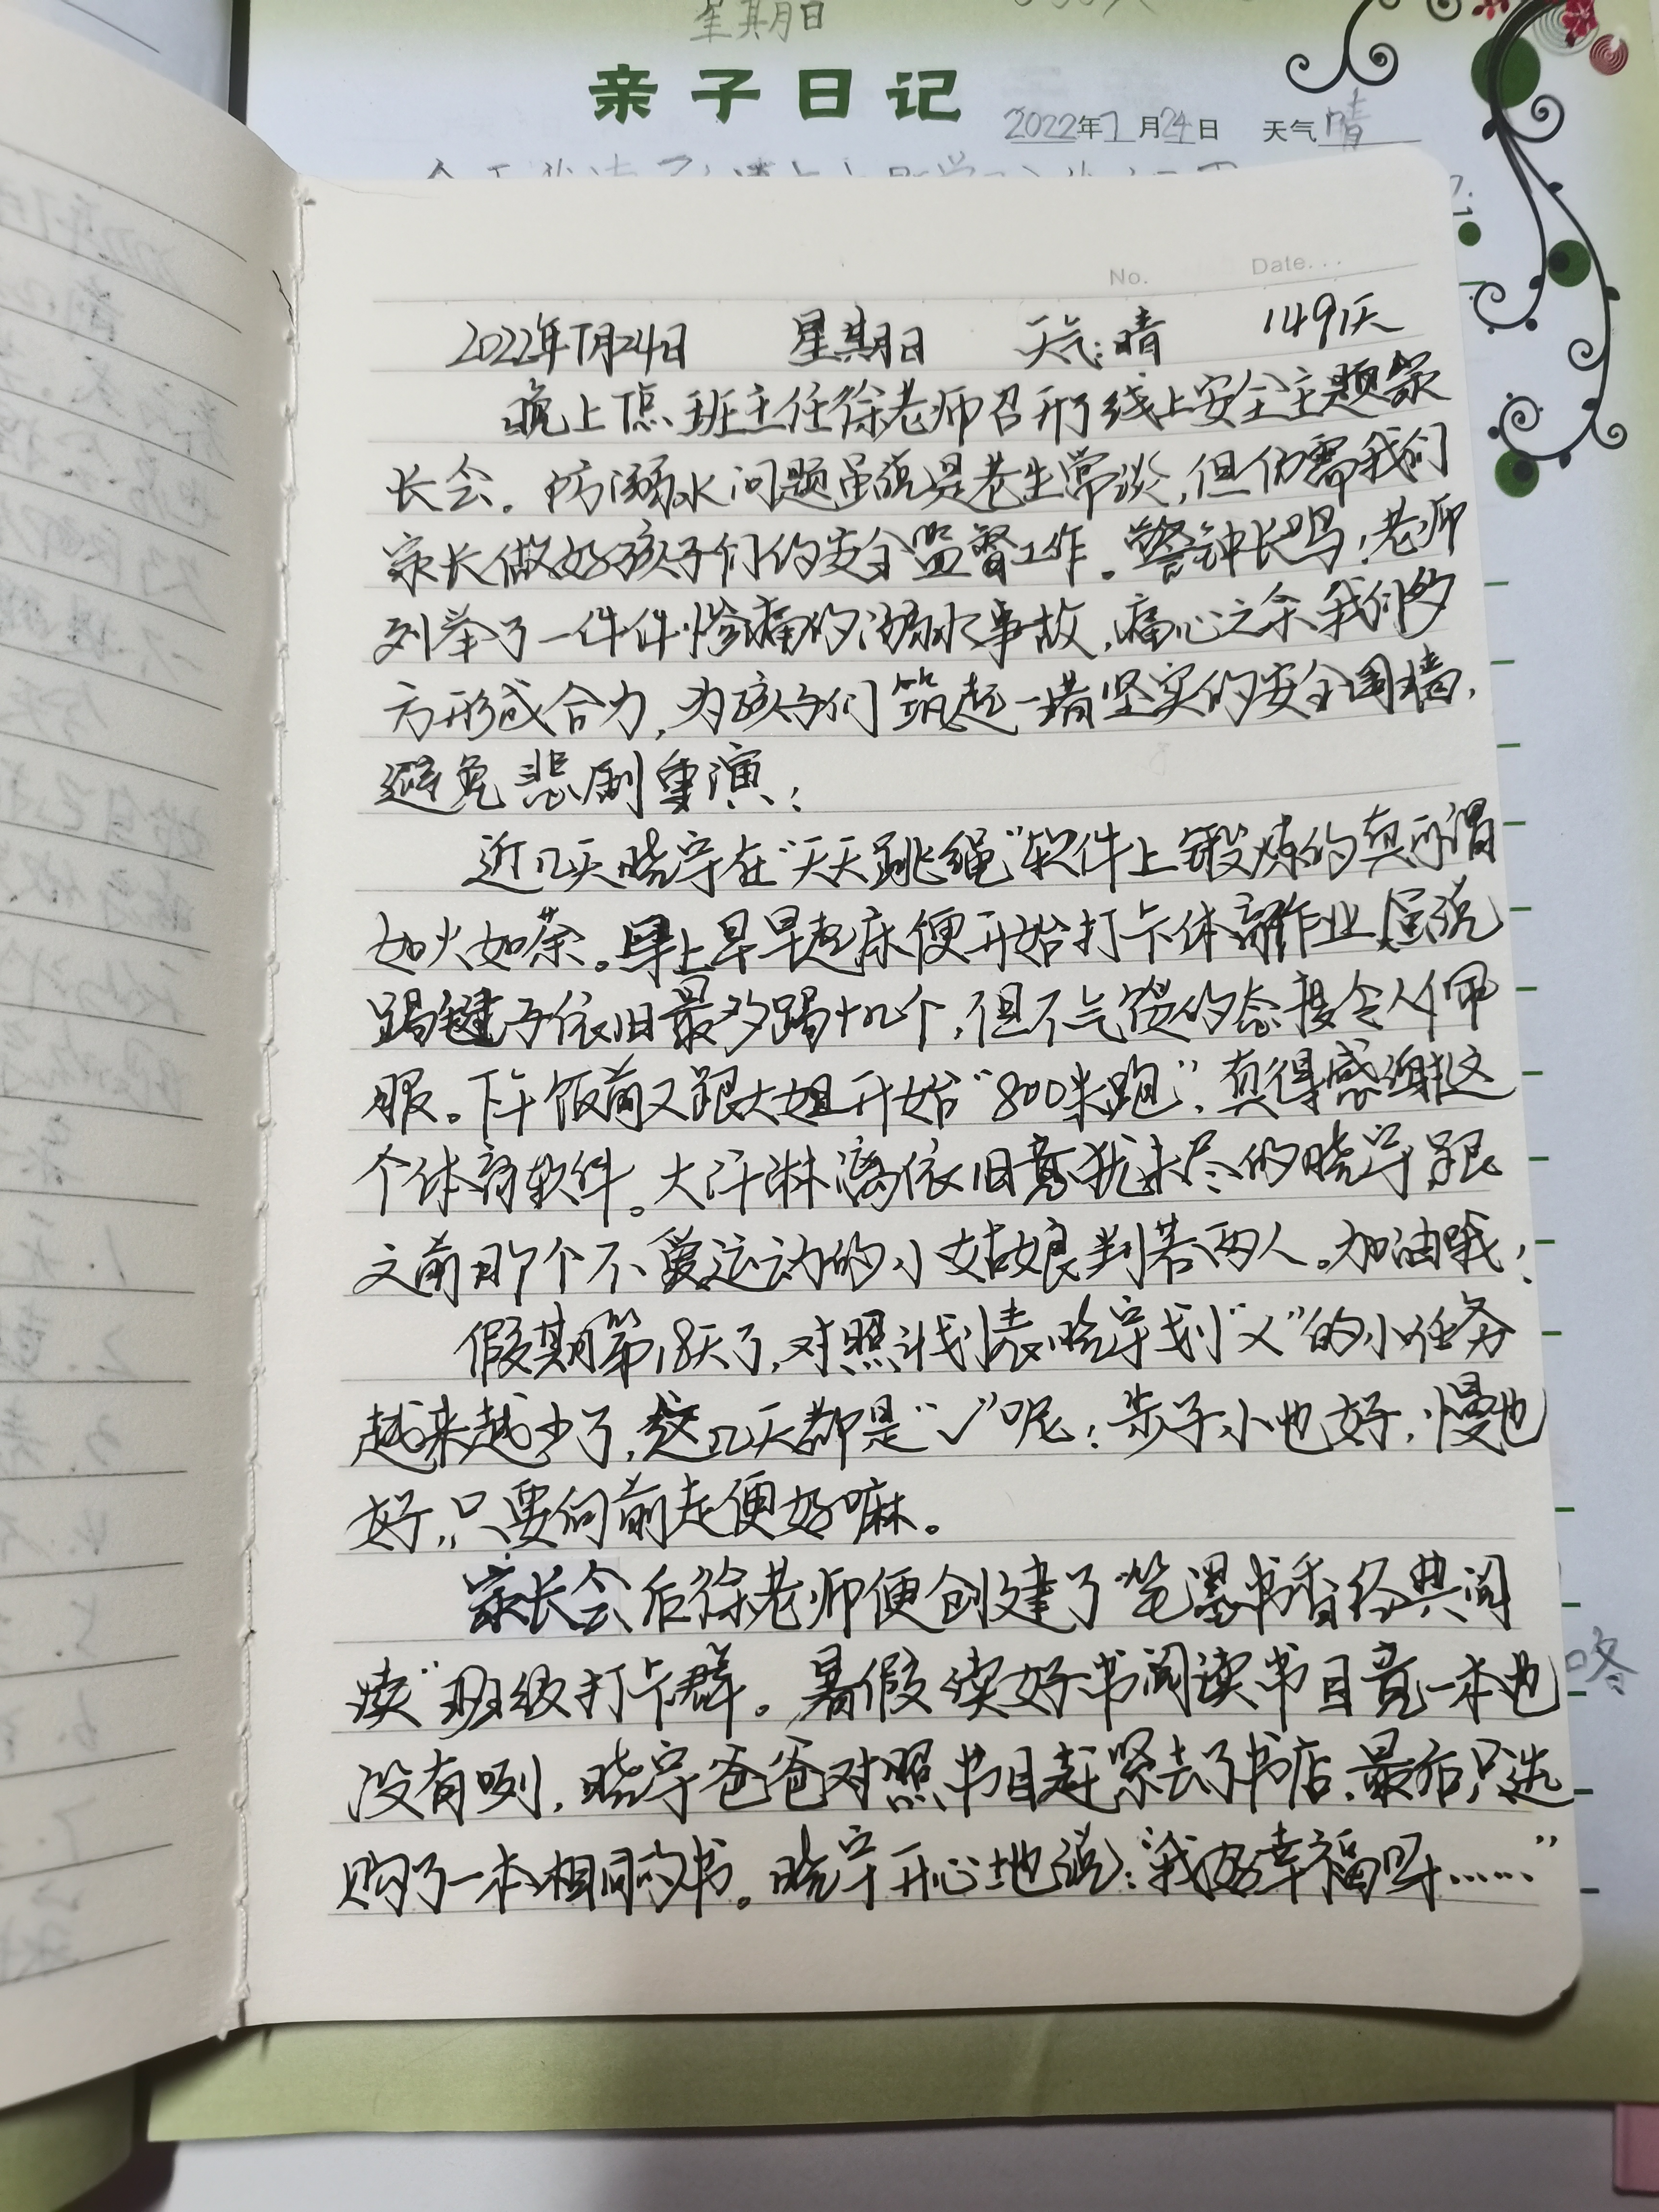 星期日
亲子日记
2022年7月24日 天气晴
No. Date...
2022年7月24日 星期日 天气:晴 149天
晚上7点班主任徐老师召开了线上安全主题家
长会。防溺水问题虽说是老生常谈,但仍需我们
家长做好孩子们的安全监督工作。警钟长鸣!老师
列举了一件件惨痛的溺水事故,痛心之余我们多
方形成合力,为孩子们筑起一堵坚实的安全围墙,
避免悲剧重演!
近几天晓宇在“天天跳绳”软件上锻炼的真所谓
如火如荼。早上早早起床便开始打卡体育作业,虽说
踢毽子依旧最多踢十几个,但不气馁的态度令人佩
服。下午饭前又跟大姐开始“800米跑”,真得感谢这
个体育软件。大汗淋漓依旧意犹未尽的晓宇跟
之前那个不爱运动的小姑娘判若两人。加油哦!
假期第18天了,对照计划表晓宇划“×”的小任务
越来越少了,这几天都是“✓”呢!步子小也好,慢也
好,只要向前走便好嘛。
家长会后徐老师便创建了“笔墨书香经典阅
读”班级打卡群。暑假读好书阅读书目竟一本也
没有咧,晓宇爸爸对照书目赶紧去了书店,最后只选
购了一本相同的书。晓宇开心地说:“我好幸福呀……”
咚